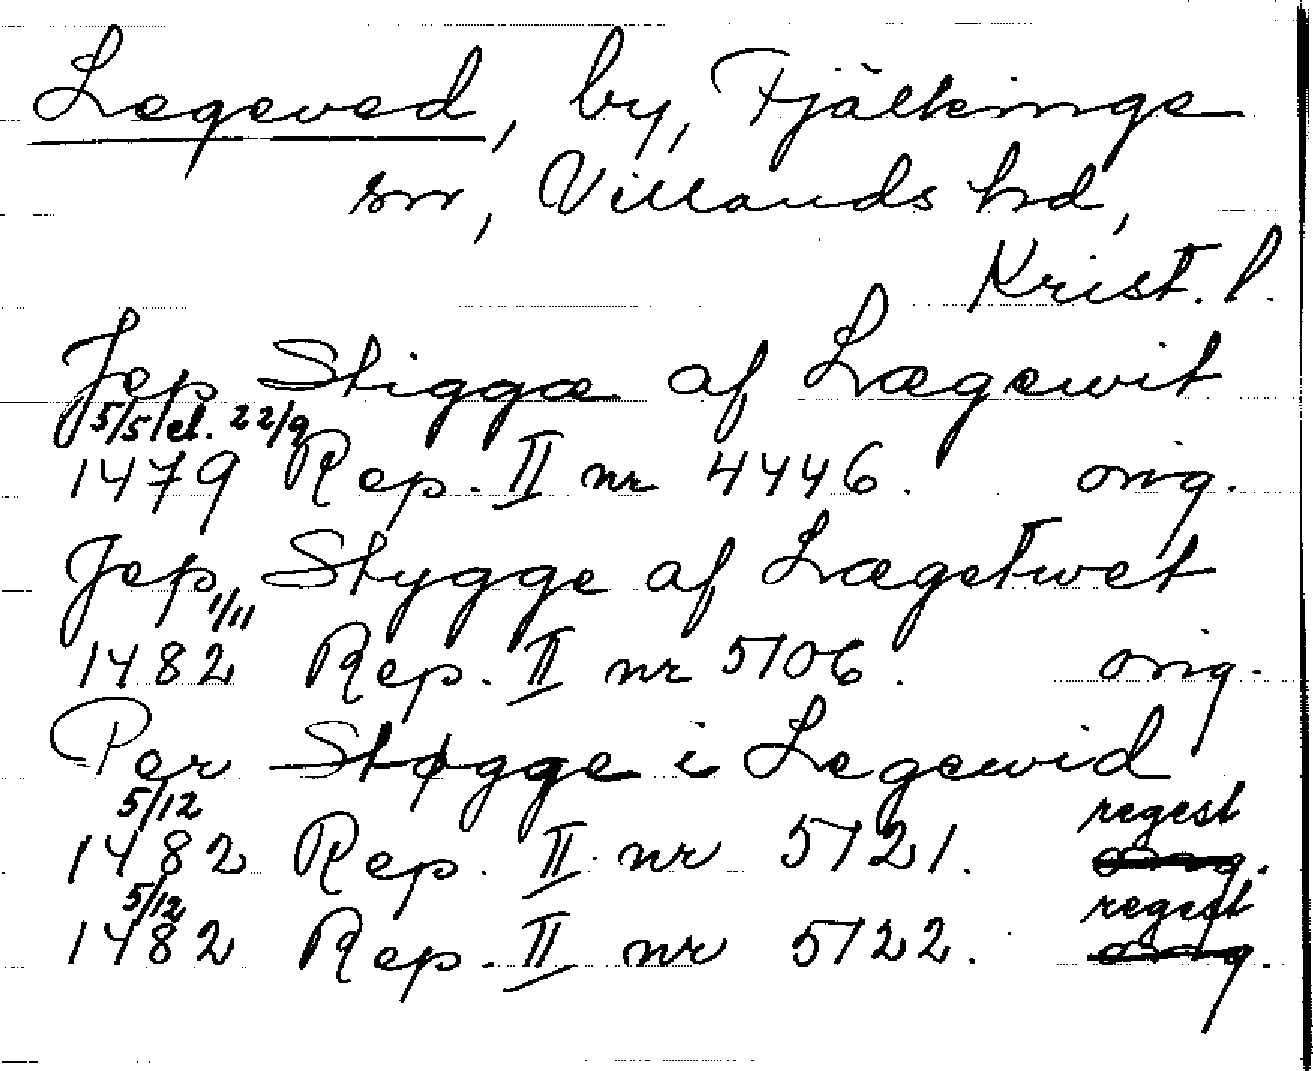 Legeved, by, Fjälkinge
sn, Villands hd,
Krist. l.
Jep Stiggæ af Lægewit
5/5 el. 22/9
1479 Rep. II nr 4446. orig.
Jep Stygge af Lægetwet
1/11
1482 Rep. II nr 5106. orig.
Per Støgge i Legewid
5/12 regest
1482 Rep. II nr 5121. orig.
5/12 regest
1482 Rep. II nr 5122. orig.